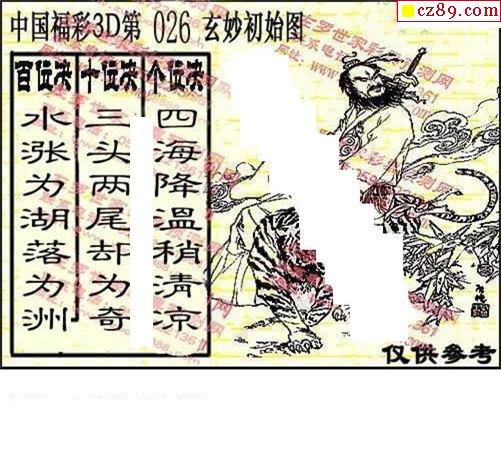 cz89.com
中国福彩3D第 026 玄妙初始图
百位决
水涨为湖落为洲
十位决
三头两尾却为奇
个位决
四海降温稍清凉
仅供参考